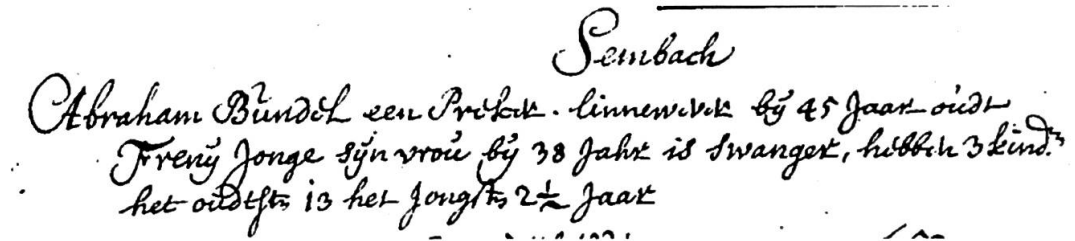 Sembach
Abraham Bündel een Preker. linnewever bÿ 45 Jaar oudt
Frenÿ Jonge sÿn vroú bÿ 38 Jahr is swanger, hebben 3 kindrn
het oudstn 13 het Jongstn 2½ Jaar